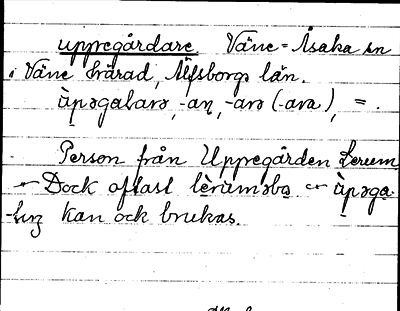 uppregårdare Väne-Åsaka sn
i Väne härad, Älfsborgs län.
ὰpəgaɫarə, -aṇ, -arə (-ara), =.
Person från Uppregården Lerum
Dock oftast lèruməbə ὰpəga-
kan ock brukas.